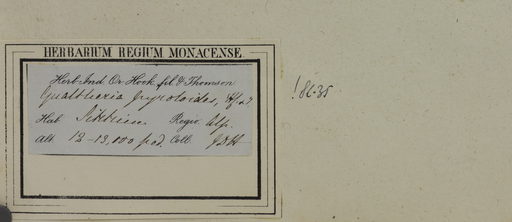 HERBARIUM REGIUM MONACENSE.
Herb. Ind. Or. Hook. fil. & Thomson
Gualtheria pyroloides, Hf & T
Hab. Sikkim Regio. Alp.
Alt. 12-13,000 ped. Coll. JDH
! 8635